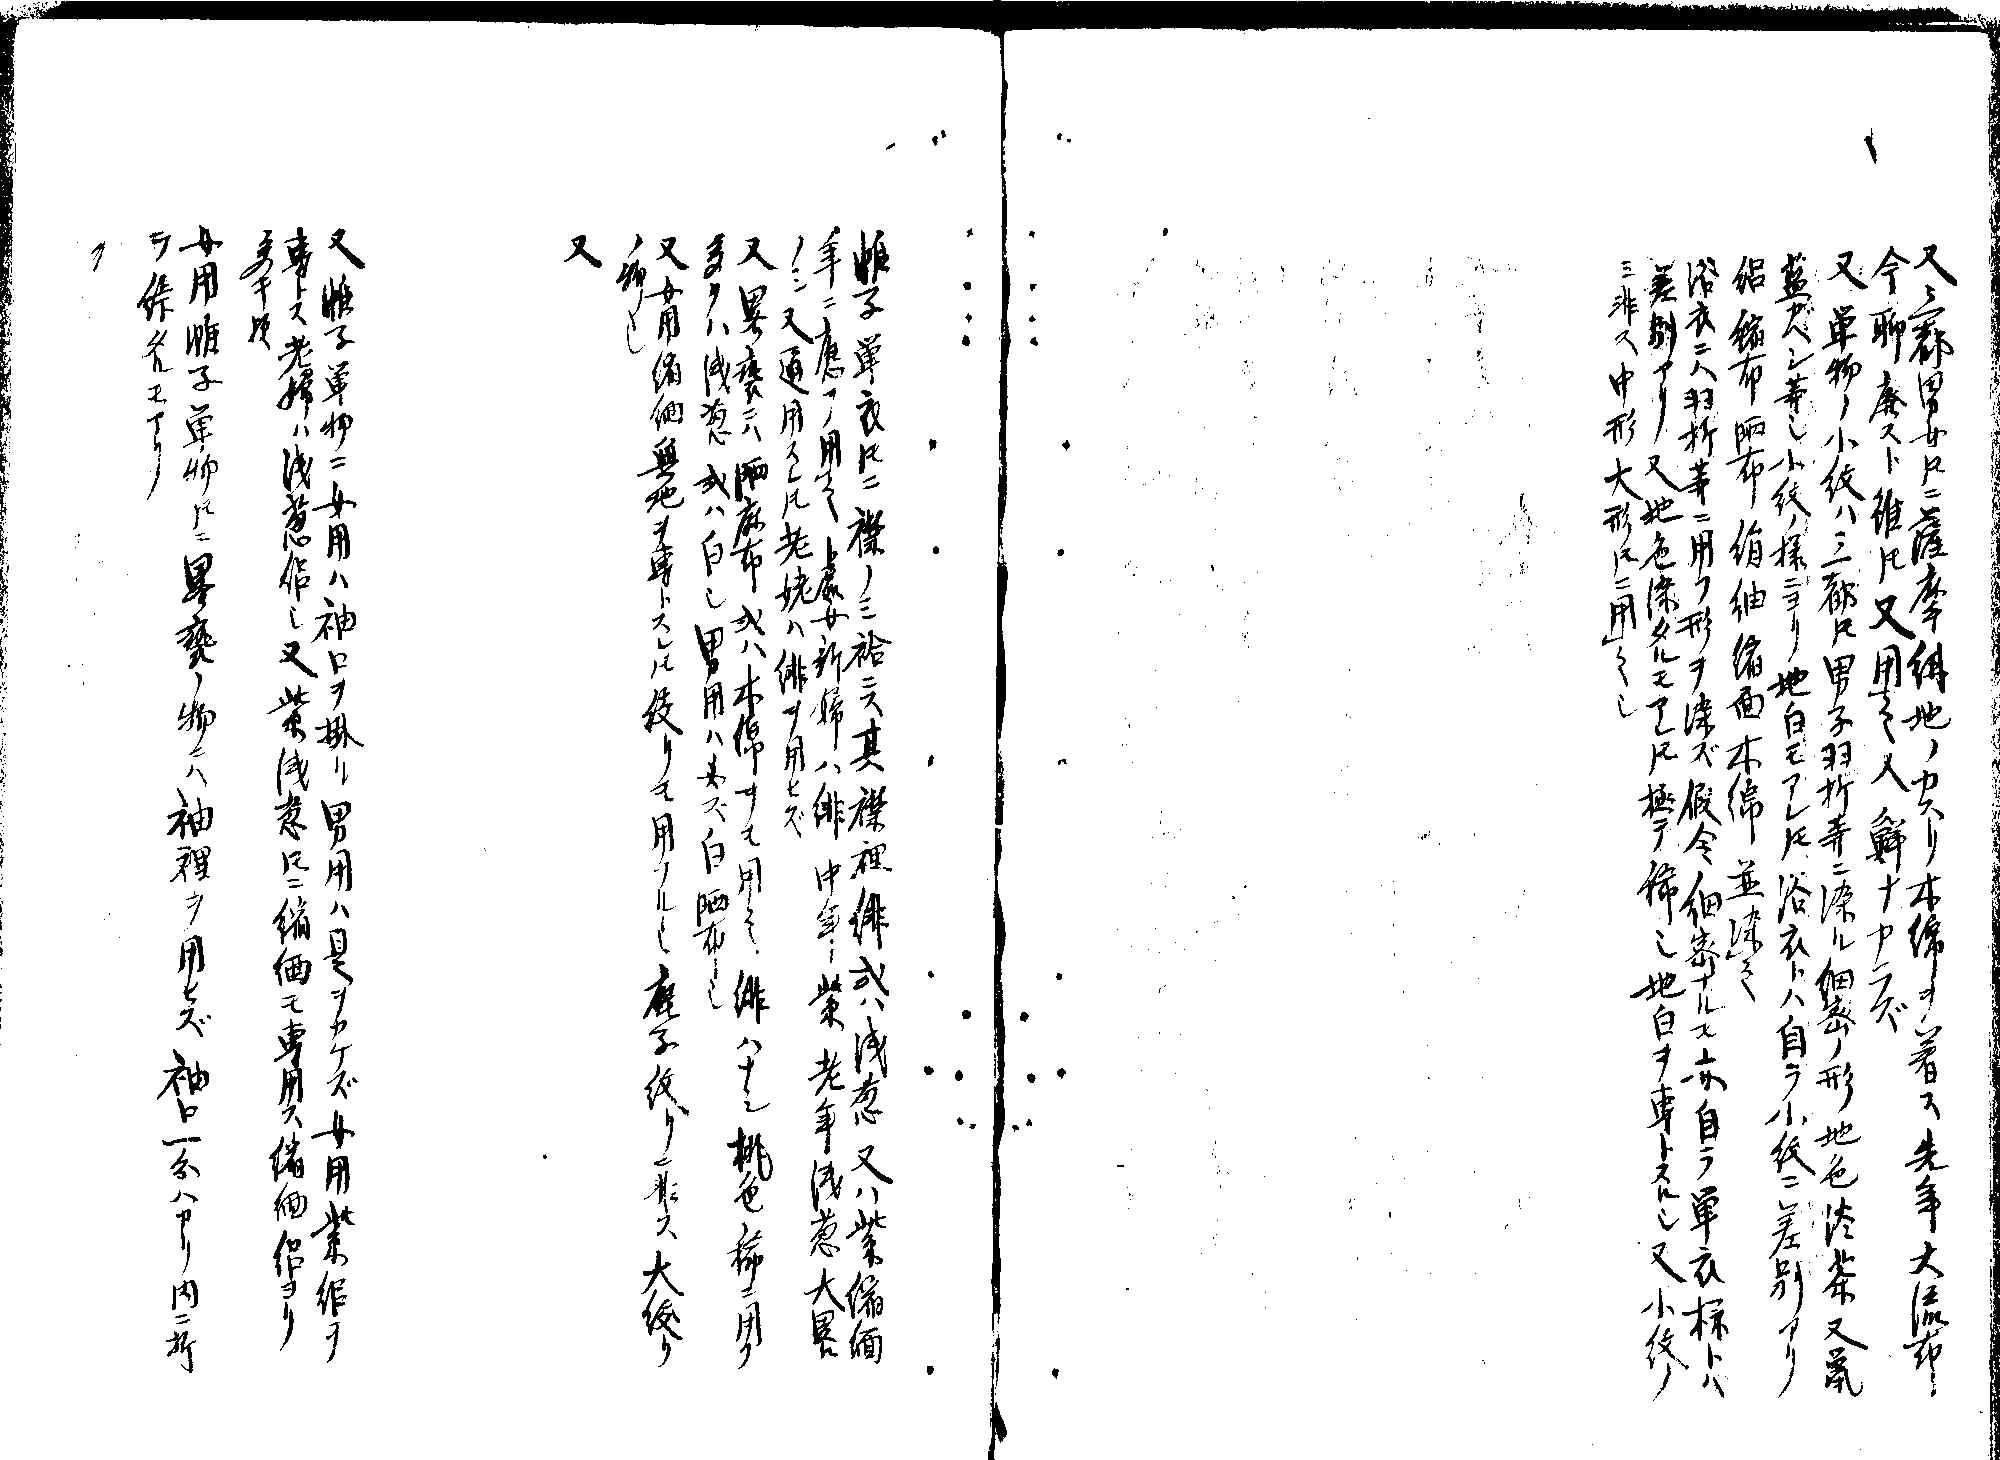 又三都男女トモニ薩摩絣地ノカスリ木綿ヲ着ス先年大流布
今聊廃スト雖トモ又用之人鮮ナカラズ
又単物ノ小紋ハ三都トモ男子羽折等ニ染ル細密ノ形地色淡茶又鼠
藍カベシ等也小紋ノ様ニヨリ地白モアレトモ浴衣トハ自ラ小紋ニ差別アリ
絽縮布晒布絹紬縮面木綿並染之
浴衣ニハ羽折等ニ用フ形ヲ染ズ假令細密ナルモ亦自ラ単衣様トハ
差別アリ又地色染タルモアレトモ極テ稀也地白ヲ専トスル也又小紋ノ
ミ非ス中形大形トモニ用之也
帷子単衣トモニ襟ノミ袷ニス其襟裡緋或ハ浅葱又ハ紫縮緬
年ニ應テ用之上處女新婦ハ緋中年ハ紫老年浅葱大畧
ノミ又通用スレトモ老姥ハ緋ヲ用ヒズ
又畧褻ニハ晒麻布或ハ木綿ヲモ用之緋ハナシ桃色稀ニ用フ
多クハ浅葱或ハ白シ男用ハ染ズ白晒布也
又女用縮緬無地ヲ専トスレトモ絞リモ用フル也鹿子絞リニ非ス大絞リ
ノ類也
又
又帷子単物ニ女用ハ袖口ヲ掛ル男用ハ是ヲカケズ女用紫絽ヲ
専トス老婦ハ浅葱絽也又紫浅葱トモニ縮緬モ専用ス縮緬絽ヨリ
多キ歟
女用帷子単物トモニ畧褻ノ物ニハ袖裡ヲ用ヒズ袖口一分ハカリ内ニ折
テ絎タルモアリ